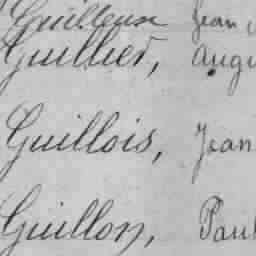 Guilleux Jean
Guillier, Augu
Guillois, Jean
Guillon, Paul